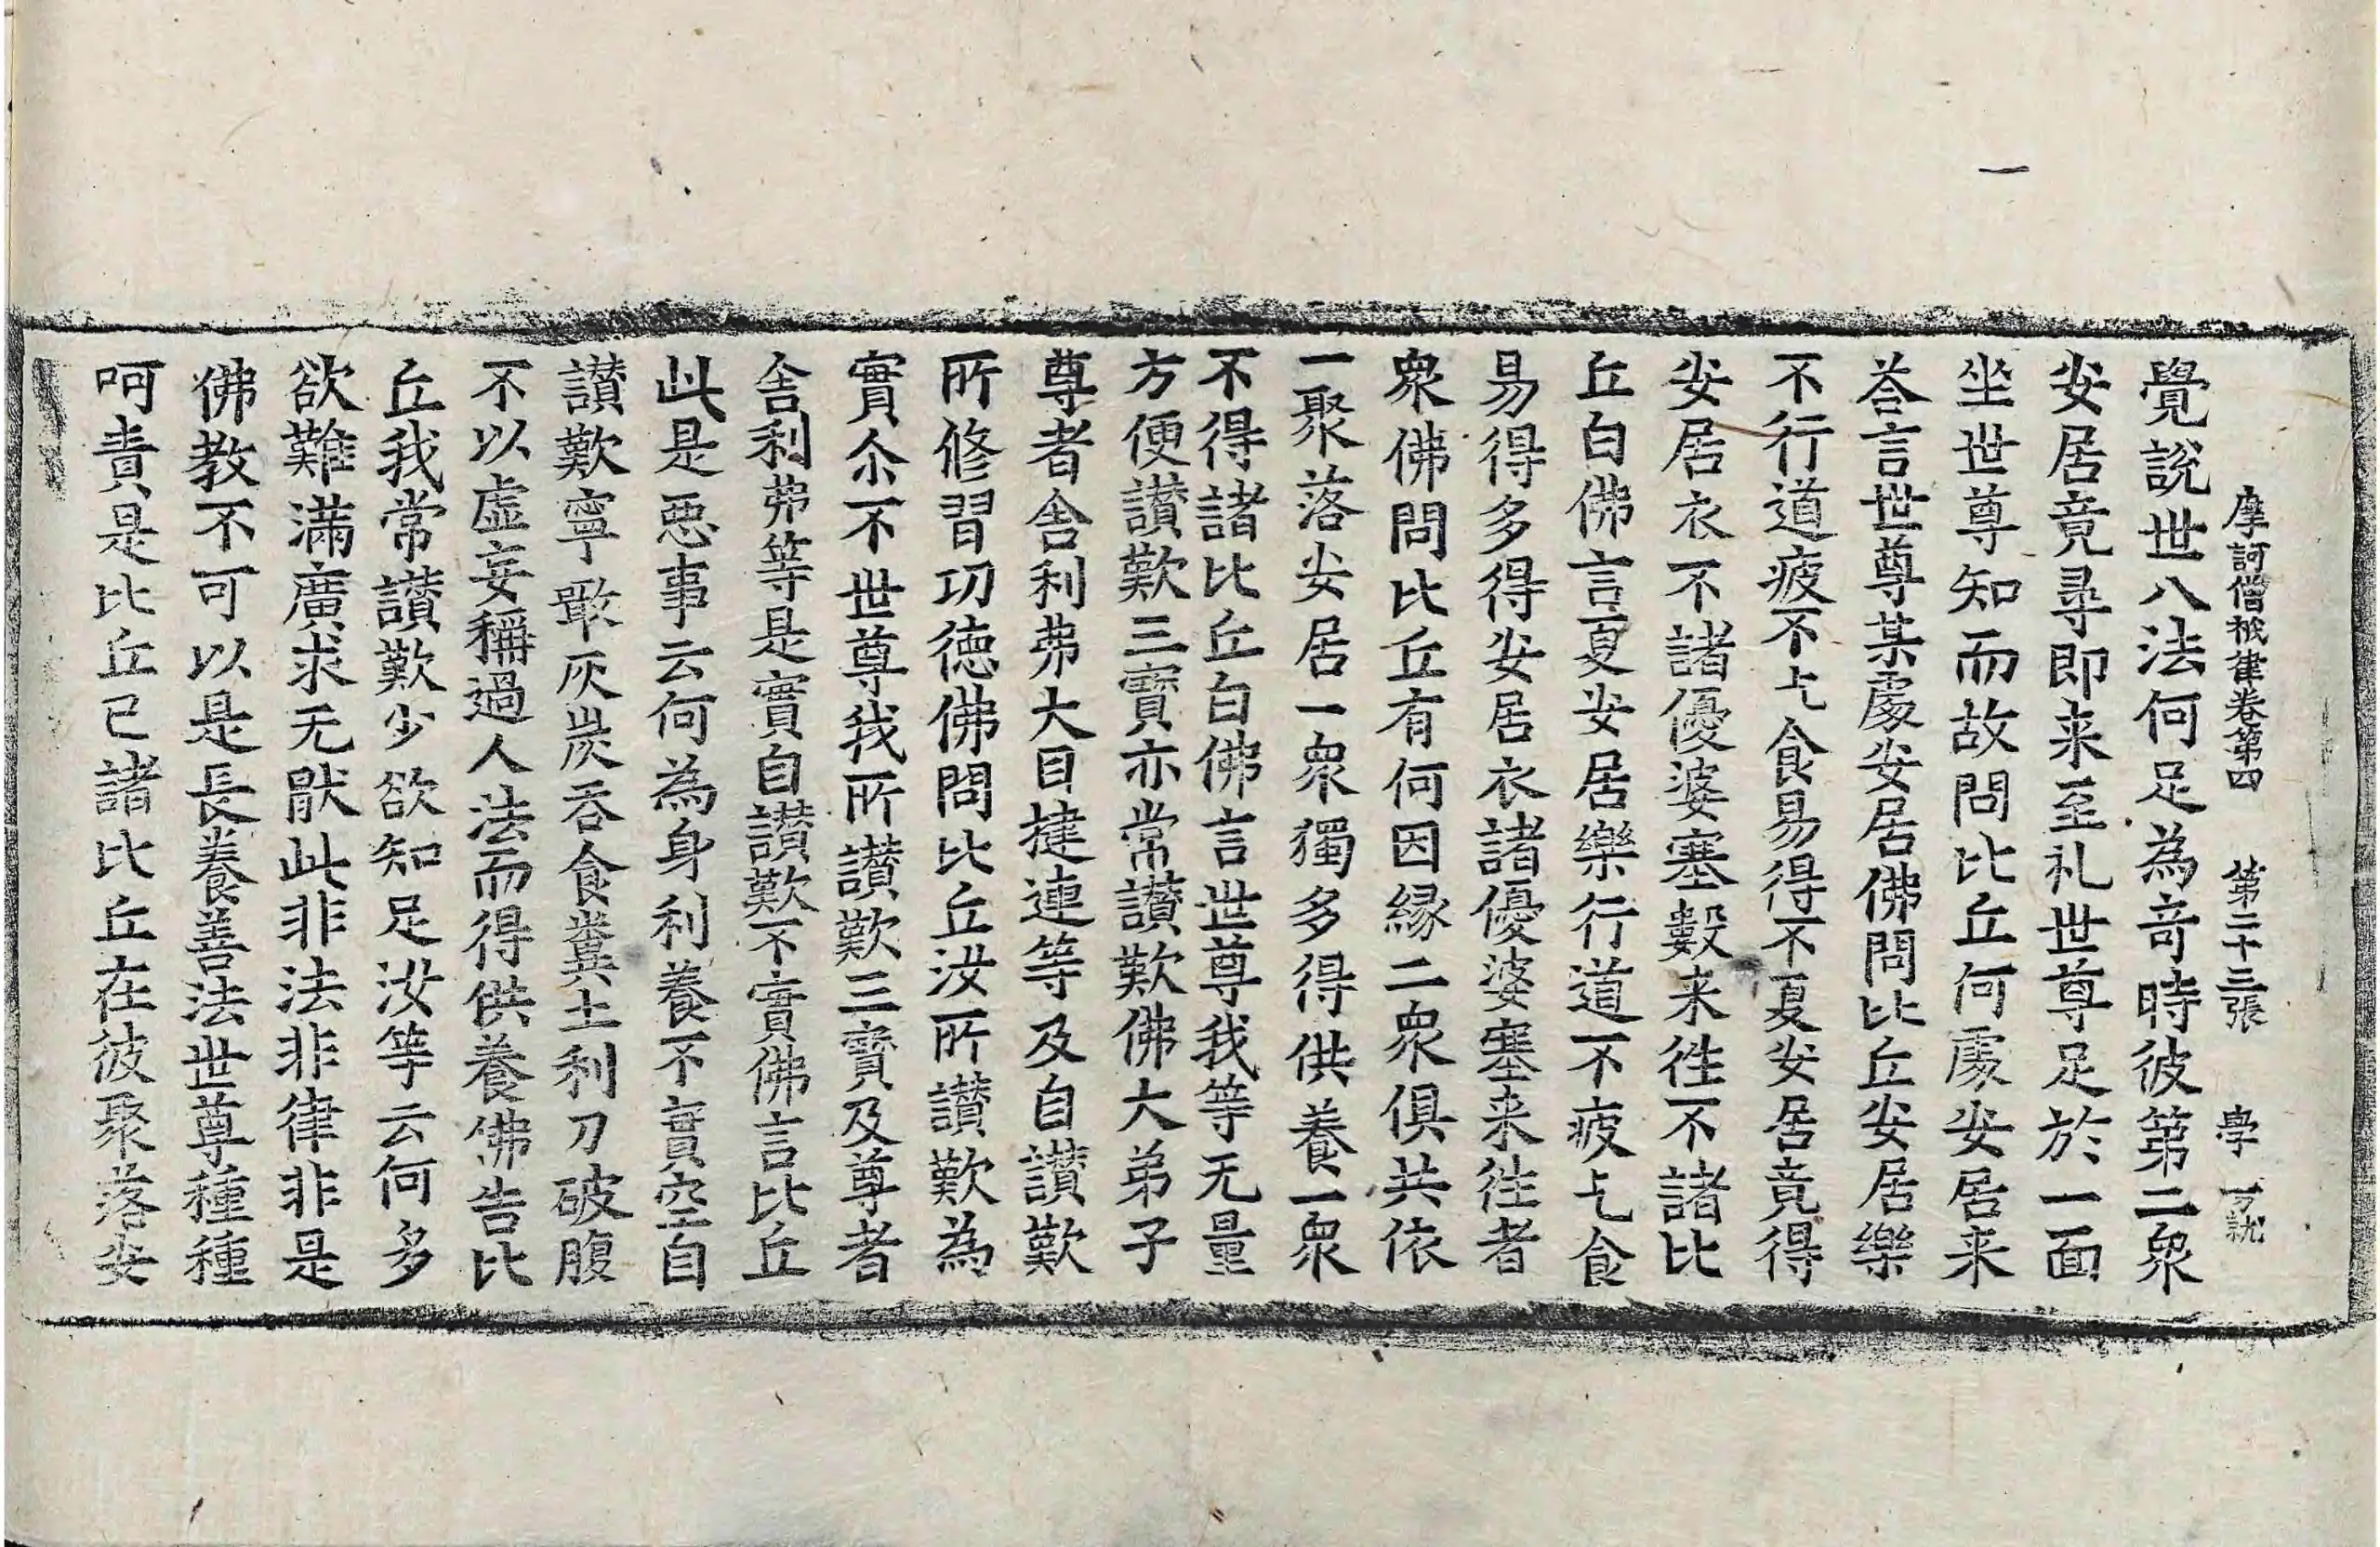 摩訶僧祇律卷第四 第二十三張 學
覺說世八法何足為竒時彼第二衆
安居竟尋即来至礼世尊足於一面
坐世尊知而故問比丘何處安居来
荅言世尊某處安居佛問比丘安居樂
不行道疲不乞食易得不夏安居竟得
安居衣不諸優婆塞數来往不諸比
丘白佛言夏安居樂行道不疲乞食
易得多得安居衣諸優婆塞来往者
衆佛問比丘有何因緣二衆俱共依
一聚落安居一衆獨多得供養一衆
不得諸比丘白佛言世尊我等无量
方便讃歎三寶亦常讃歎佛大弟子
尊者舎利弗大目揵連等及自讃歎
所修習功德佛問比丘汝所讃歎為
實尒不世尊我所讃歎三寶及尊者
舎利弗等是實自讃歎不實佛言比丘
此是惡事云何為身利養不實空自
讃歎寧噉灰炭吞食糞土利刀破腹
不以虛妄稱過人法而得供養佛告比
丘我常讃歎少欲知足汝等云何多
欲難滿廣求无猒此非法非律非是
佛教不可以是長養善法世尊種種
呵責是比丘已諸比丘在彼聚落安